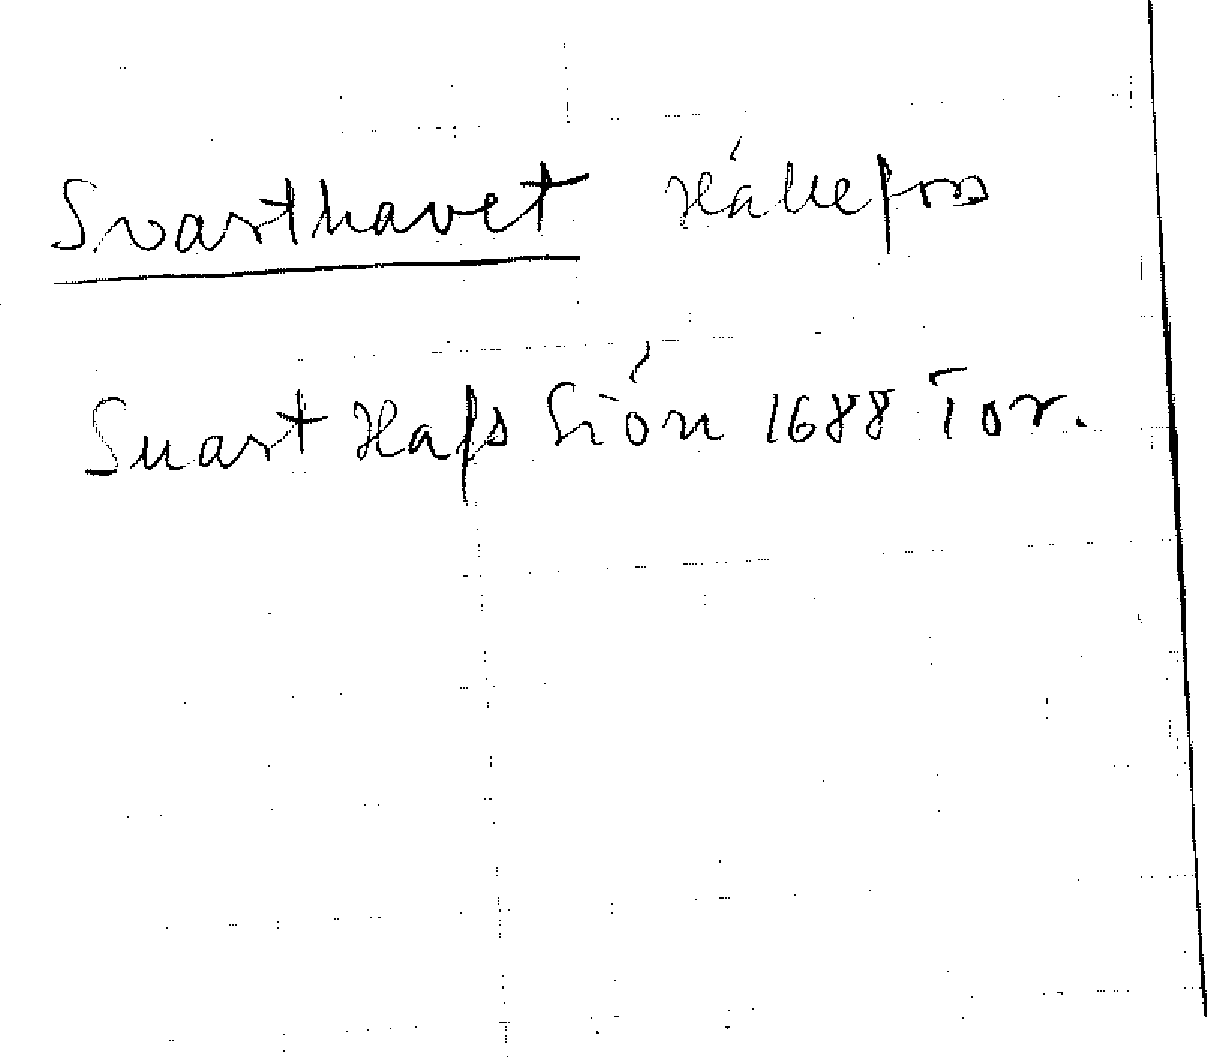 Svarthavet Hällefors
Suart Hafs Siön 1688 Tor.